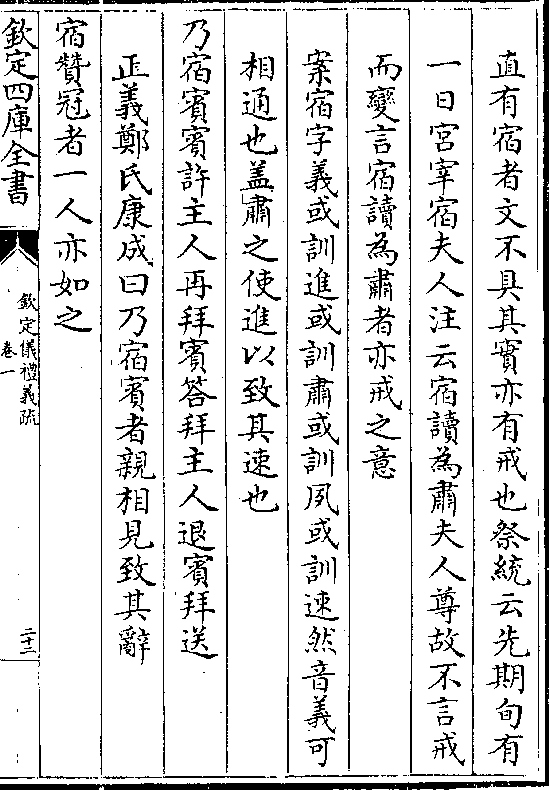 直有宿者文不具其實亦有戒也祭統云先期旬有
一日宮宰宿夫人注云宿讀為肅夫人尊故不言戒
而變言宿讀為肅者亦戒之意
案宿字義或訓進或訓肅或訓夙或訓速然音義可
相通也盖肅之使進以致其速也
乃宿賓賓許主人再拜賓答拜主人退賓拜送
正義鄭氏康成曰乃宿賓者親相見致其辭
宿贊冠者一人亦如之
欽定四庫全書
欽定儀禮義疏
卷一
二十二